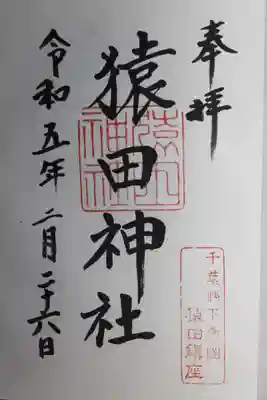 奉拝
猿田神社
令和五年二月二十六日
猿田神社
千葉県下三国
猿田鎮座